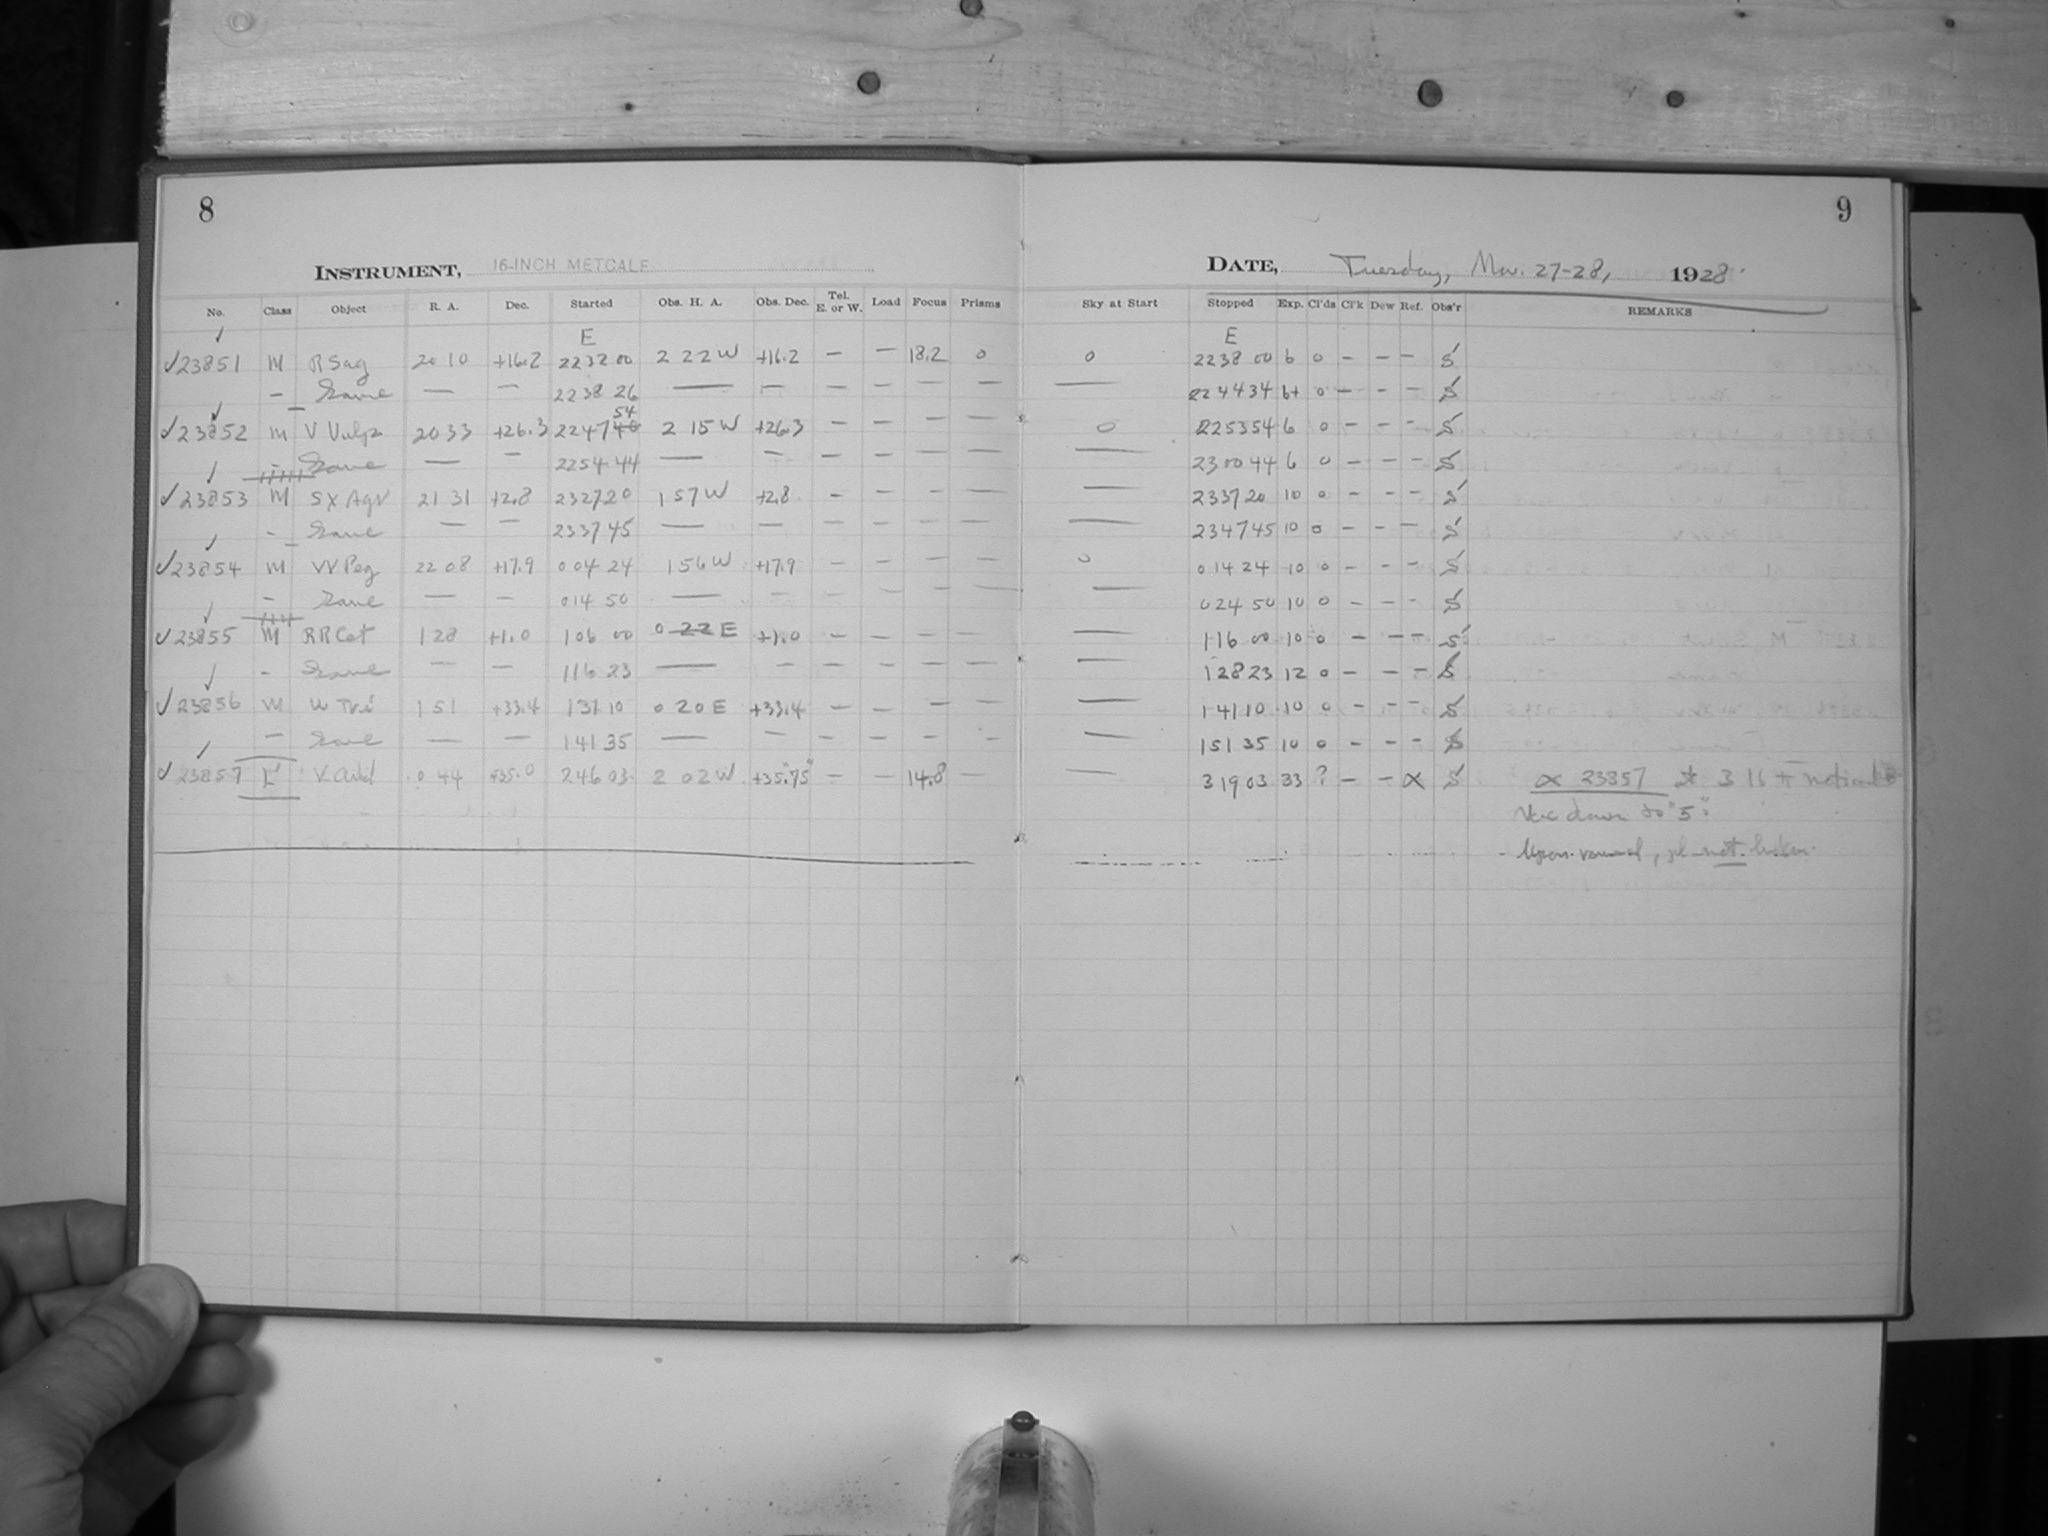 8
9
INSTRUMENT, 16-INCH METCALF
DATE, Tuesday, Nov. 27-28, 1928.
No. Class Object R. A. Dec. Started Obs. H. A. Obs. Dec. Tel. E. or W. Load Focus Prisms Sky at Start Stopped Exp. Cl'ds Cl'k Dew Ref. Obs'r REMARKS
E E
✓23851 M R Sag 20 10 +16.2 22 32 00 2 22 W +16.2 — — 18.2 0 0 22 38 00 6 0 — — — S
— Same — — 22 38 26 — — — — — — — 22 44 34 6+ 0 — — — S
54
✓23852 M V Vulp 20 33 +26.3 22 47 40 2 15 W +26.3 — — — — 0 22 53 54 6 0 — — — S
— Same — — 22 54 44 — — — — — — — 23 00 44 6 0 — — — S
✓23853 M SX Aqr 21 31 +2.8 23 27 20 1 57 W +2.8 — — — — — 23 37 20 10 0 — — — S
— Same — — 23 37 45 — — — — — — — 23 47 45 10 0 — — — S
✓23854 M VV Peg 22 08 +17.9 0 04 24 1 56 W +17.9 — — — — 0 0 14 24 10 0 — — — S
— Same — — 0 14 50 — — — — — — — 0 24 50 10 0 — — — S
✓23855 M RR Cet 1 28 +1.0 1 06 00 0 22 E +1.0 — — — — — 1 16 00 10 0 — — — S
— Same — — 1 16 23 — — — — — — — 1 28 23 12 0 — — — S
✓23856 M W Tri 1 51 +33.4 1 31 10 0 20 E +33.4 — — — — — 1 41 10 10 0 — — — S
— Same — — 1 41 35 — — — — — — — 1 51 35 10 0 — — — S
✓23857 L' 0 44 +35.0 2 46 03 2 02 W +35.75 — — 14.8 — — 3 19 03 33 ? — — α S α 23857 at 3 16 ± noticed
down to "5".
Upon removal, pl. not broken.